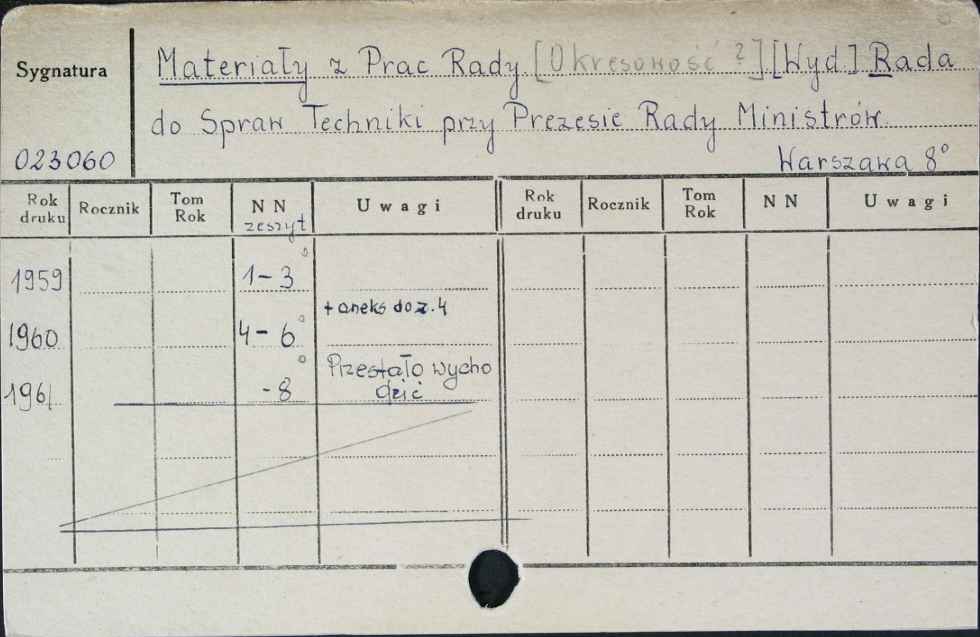 Sygnatura
Materiały z Prac Rady [Okresowość ?] [Wyd.] Rada
do Spraw Techniki przy Prezesie Rady Ministrów.
023060
Warszawa 8°
Rok druku Rocznik Tom Rok NN zeszyt Uwagi Rok druku Rocznik Tom Rok NN Uwagi
1959 1-3°
+ aneks do z. 4
1960 4-6°
Przestało wycho
1961 -8° dzić